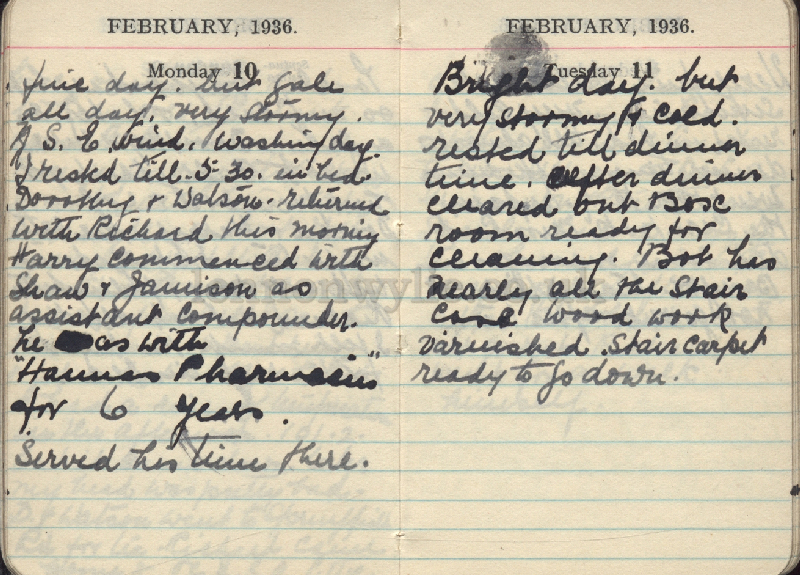 FEBRUARY, 1936.
Monday 10
fine day. but gale
all day. very stormy.
S. E. wind. Washing day.
I rested till 5-30. in bed.
Dorothy & Watson. returned
with Richard this morning
Harry commenced with
Shaw & Jamison as
assistant compounder.
he was with
"Hannas Pharmacies"
for 6 years.
Served his time there.
FEBRUARY, 1936.
Tuesday 11
Bright day. but
very stormy & cold.
rested till dinner
time. after dinner
cleared out Box
room ready for
cleaning. Bob has
nearly all the Stair
wood work
varnished. Stair carpet
ready to go down.